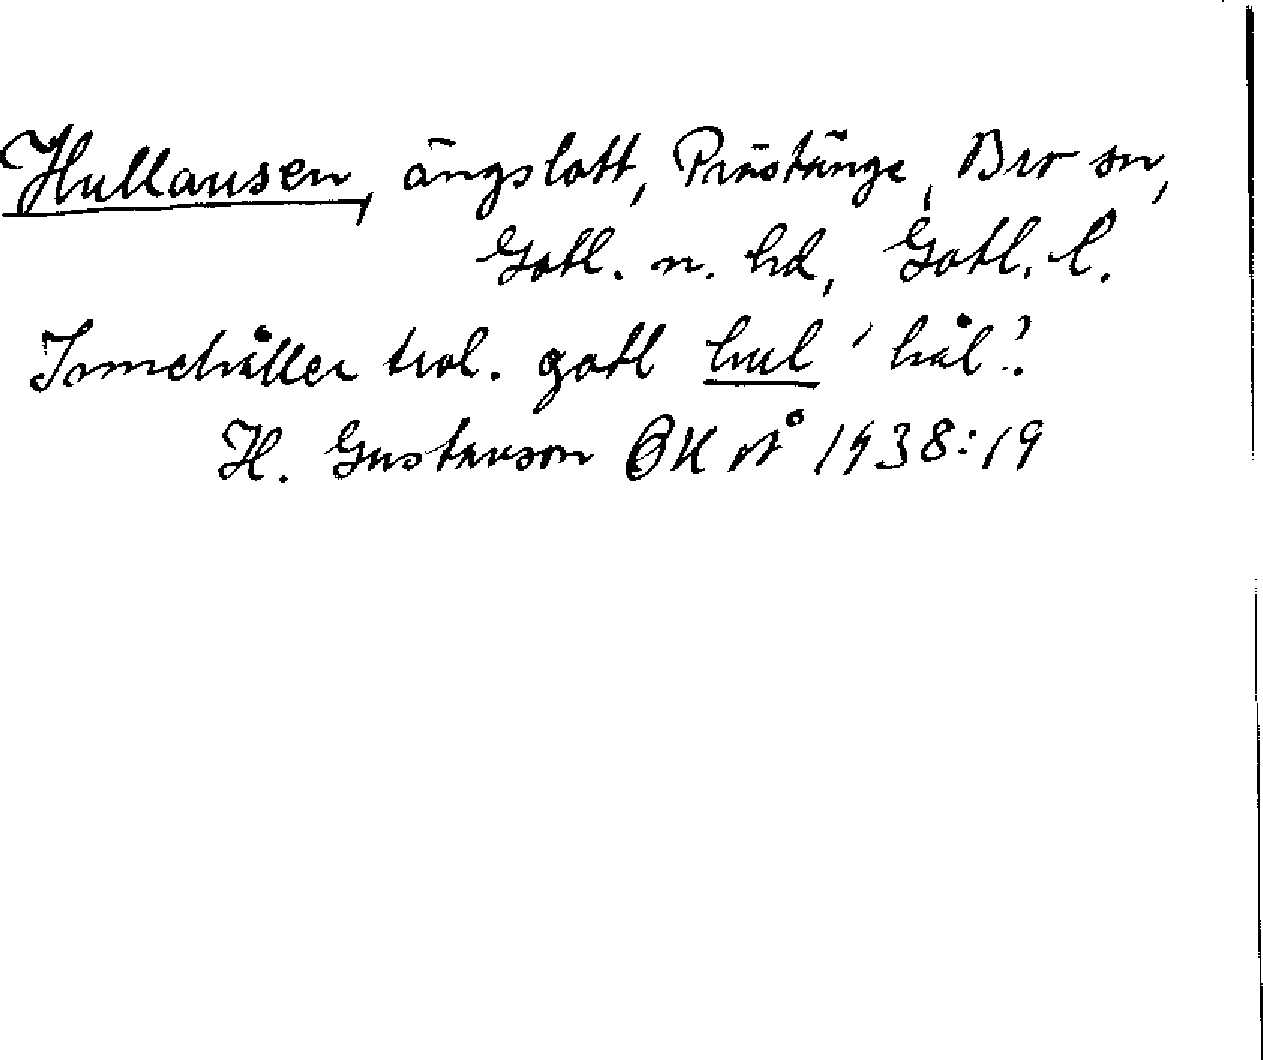 Hullausen, ängslott, Prästänge, Bro sn,
Gotl. n. hd, Gotl. l.
Innehåller trol. gotl hul 'hål'.
H. Gustavson 1938:19